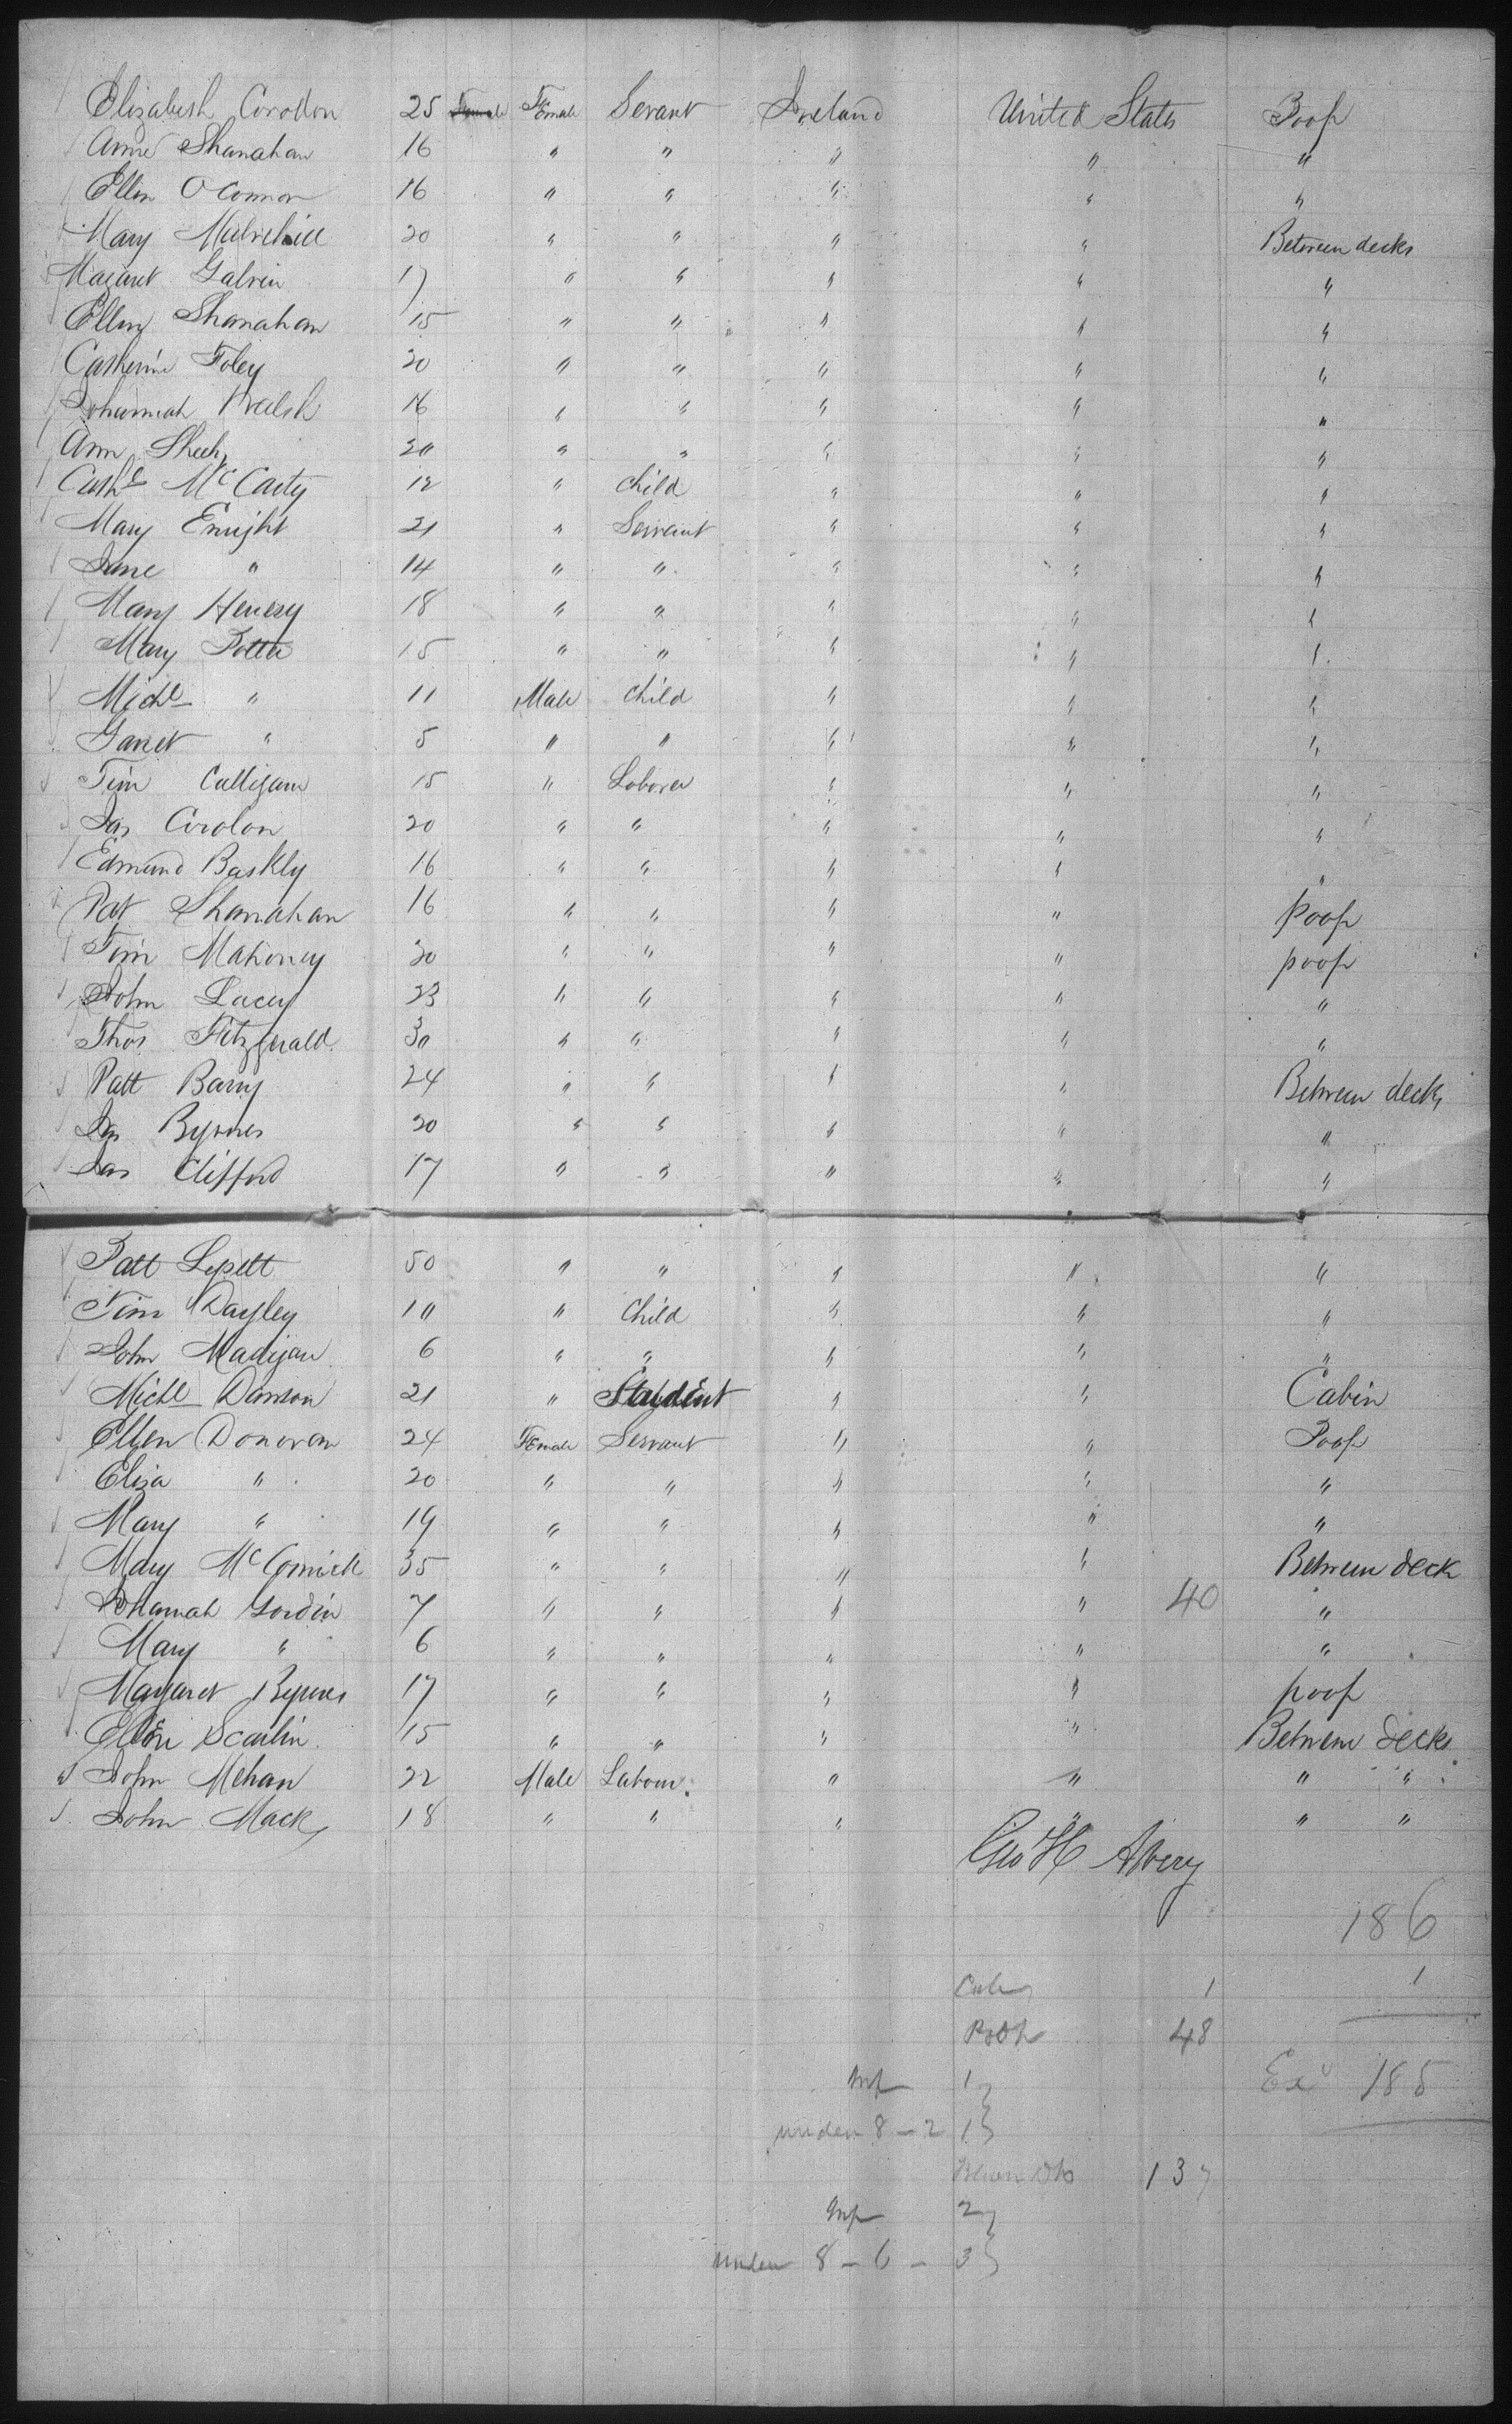 Elizabeth Corollon 25 Female Female Servant Ireland United States Poop
Anne Shanahan 16 " " " " "
Ellen O Connor 16 " " " " "
Mary Mulvehill 20 " " " " Between decks
Magaret Galvin 17 " " " " "
Ellen Shanahan 15 " " " " "
Catherine Foley 20 " " " " "
Johannah Walsh 16 " " " " "
Ann Sheehy 20 " " " " "
Cathe McCarty 12 " Child " " "
Mary Enright 21 " Servant " " "
Jane " 14 " " " " "
Mary Henesy 18 " " " " "
Mary Potter 15 " " " " "
Michl " 11 Male Child " " "
Garret " 5 " " " " "
Tim Culligan 15 " Laborer " " "
Jas Corolon 20 " " " " "
Edmund Baskly 16 " " " " "
Pat Shanahan 16 " " " " Poop
Tim Mahoney 30 " " " " poop
John Lacey 23 " " " " "
Thos Fitzgerald 30 " " " " "
Patt Barry 24 " " " " Between decks
Jas Byrnes 20 " " " " "
Jas Clifford 17 " " " " "
Patt Lysett 50 " " " " "
Tim Dayley 10 " Child " " "
John Madigan 6 " " " " "
Michl Dawson 21 " Student " " Cabin
Ellen Donovan 24 Female Servant " " Poop
Eliza " 20 " " " " "
Mary " 19 " " " " "
Mary McComick 35 " " " " Between deck
Johannah Gordin 7 " " " " 40 "
Mary " 6 " " " " "
Margaret Byrnes 17 " " " " poop
Ellen Scanlin 15 " " " " Between decks
John Mehan 22 Male Labour " " " "
John Mack 18 " " " " " "
Geo H Avery
186
Cab 1 1
Poop 48
Ex 185
Inf 1
under 8 - 2 1
Btween Dks 137
Inf 2
under 8 - 6 - 3